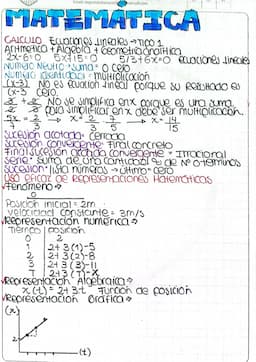 MATEMÁTICA
CALCULO Ecuaciones Lineales → Tipo 1
Aritmética + Algebra + Geometría analítica
2x-6=0 5x+15=0 5/3+6x=0 ecuaciones lineales
Numero Neutro = suma = 0 cero
Numero identidad = multiplicación
(x-3) No es ecuacion lineal porque su resultado es
(x-3 cero.
No se simplifica en x porque es una suma.
para simplificar en x debe ser multiplicación.
Sucesión acotada = cerrada
Sucesión convergente = Final concreto
Final sucesión acotada convergente = Irracional
Serie = suma de una cantidad de Nº o términos
Sucesión = lista números → último = cero
Uso eficaz de representaciones Matemáticas
Fenómeno →
0
Posición inicial = 2m
velocidad constante = 3m/s
Representación numérica →
Tiempo | posición
0 2
1 2+3(1)=5
2 2+3(2)=8
3 2+3(3)=11
T 2+3(T)=X
Representación Algebraica →
x(t)=2+3t Función de posición
Representación Grafica →
(x)
2
(t)